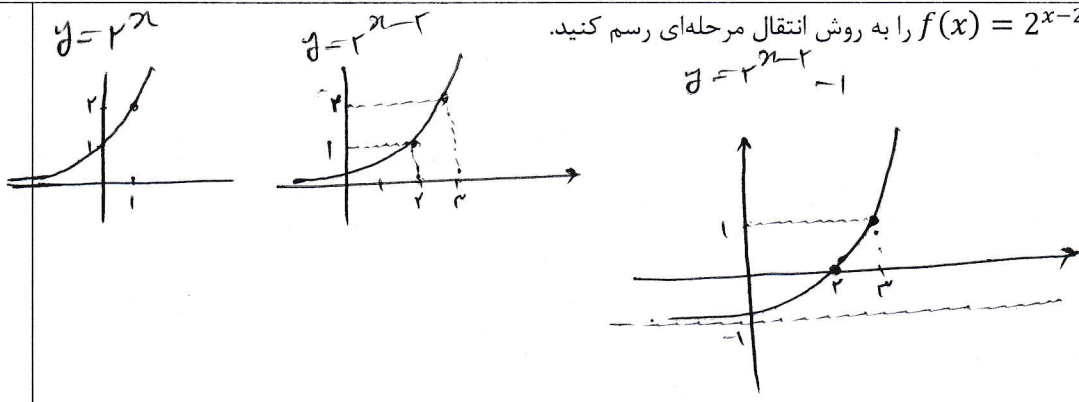 f(x) = 2^{x-2} را به روش انتقال مرحله‌ای رسم کنید.
y = ۲^x
۲
۱
۱
y = ۲^{x-۲}
۲
۱
۱
۲
۳
y = ۲^{x-۲} - ۱
۱
۲
۳
-۱